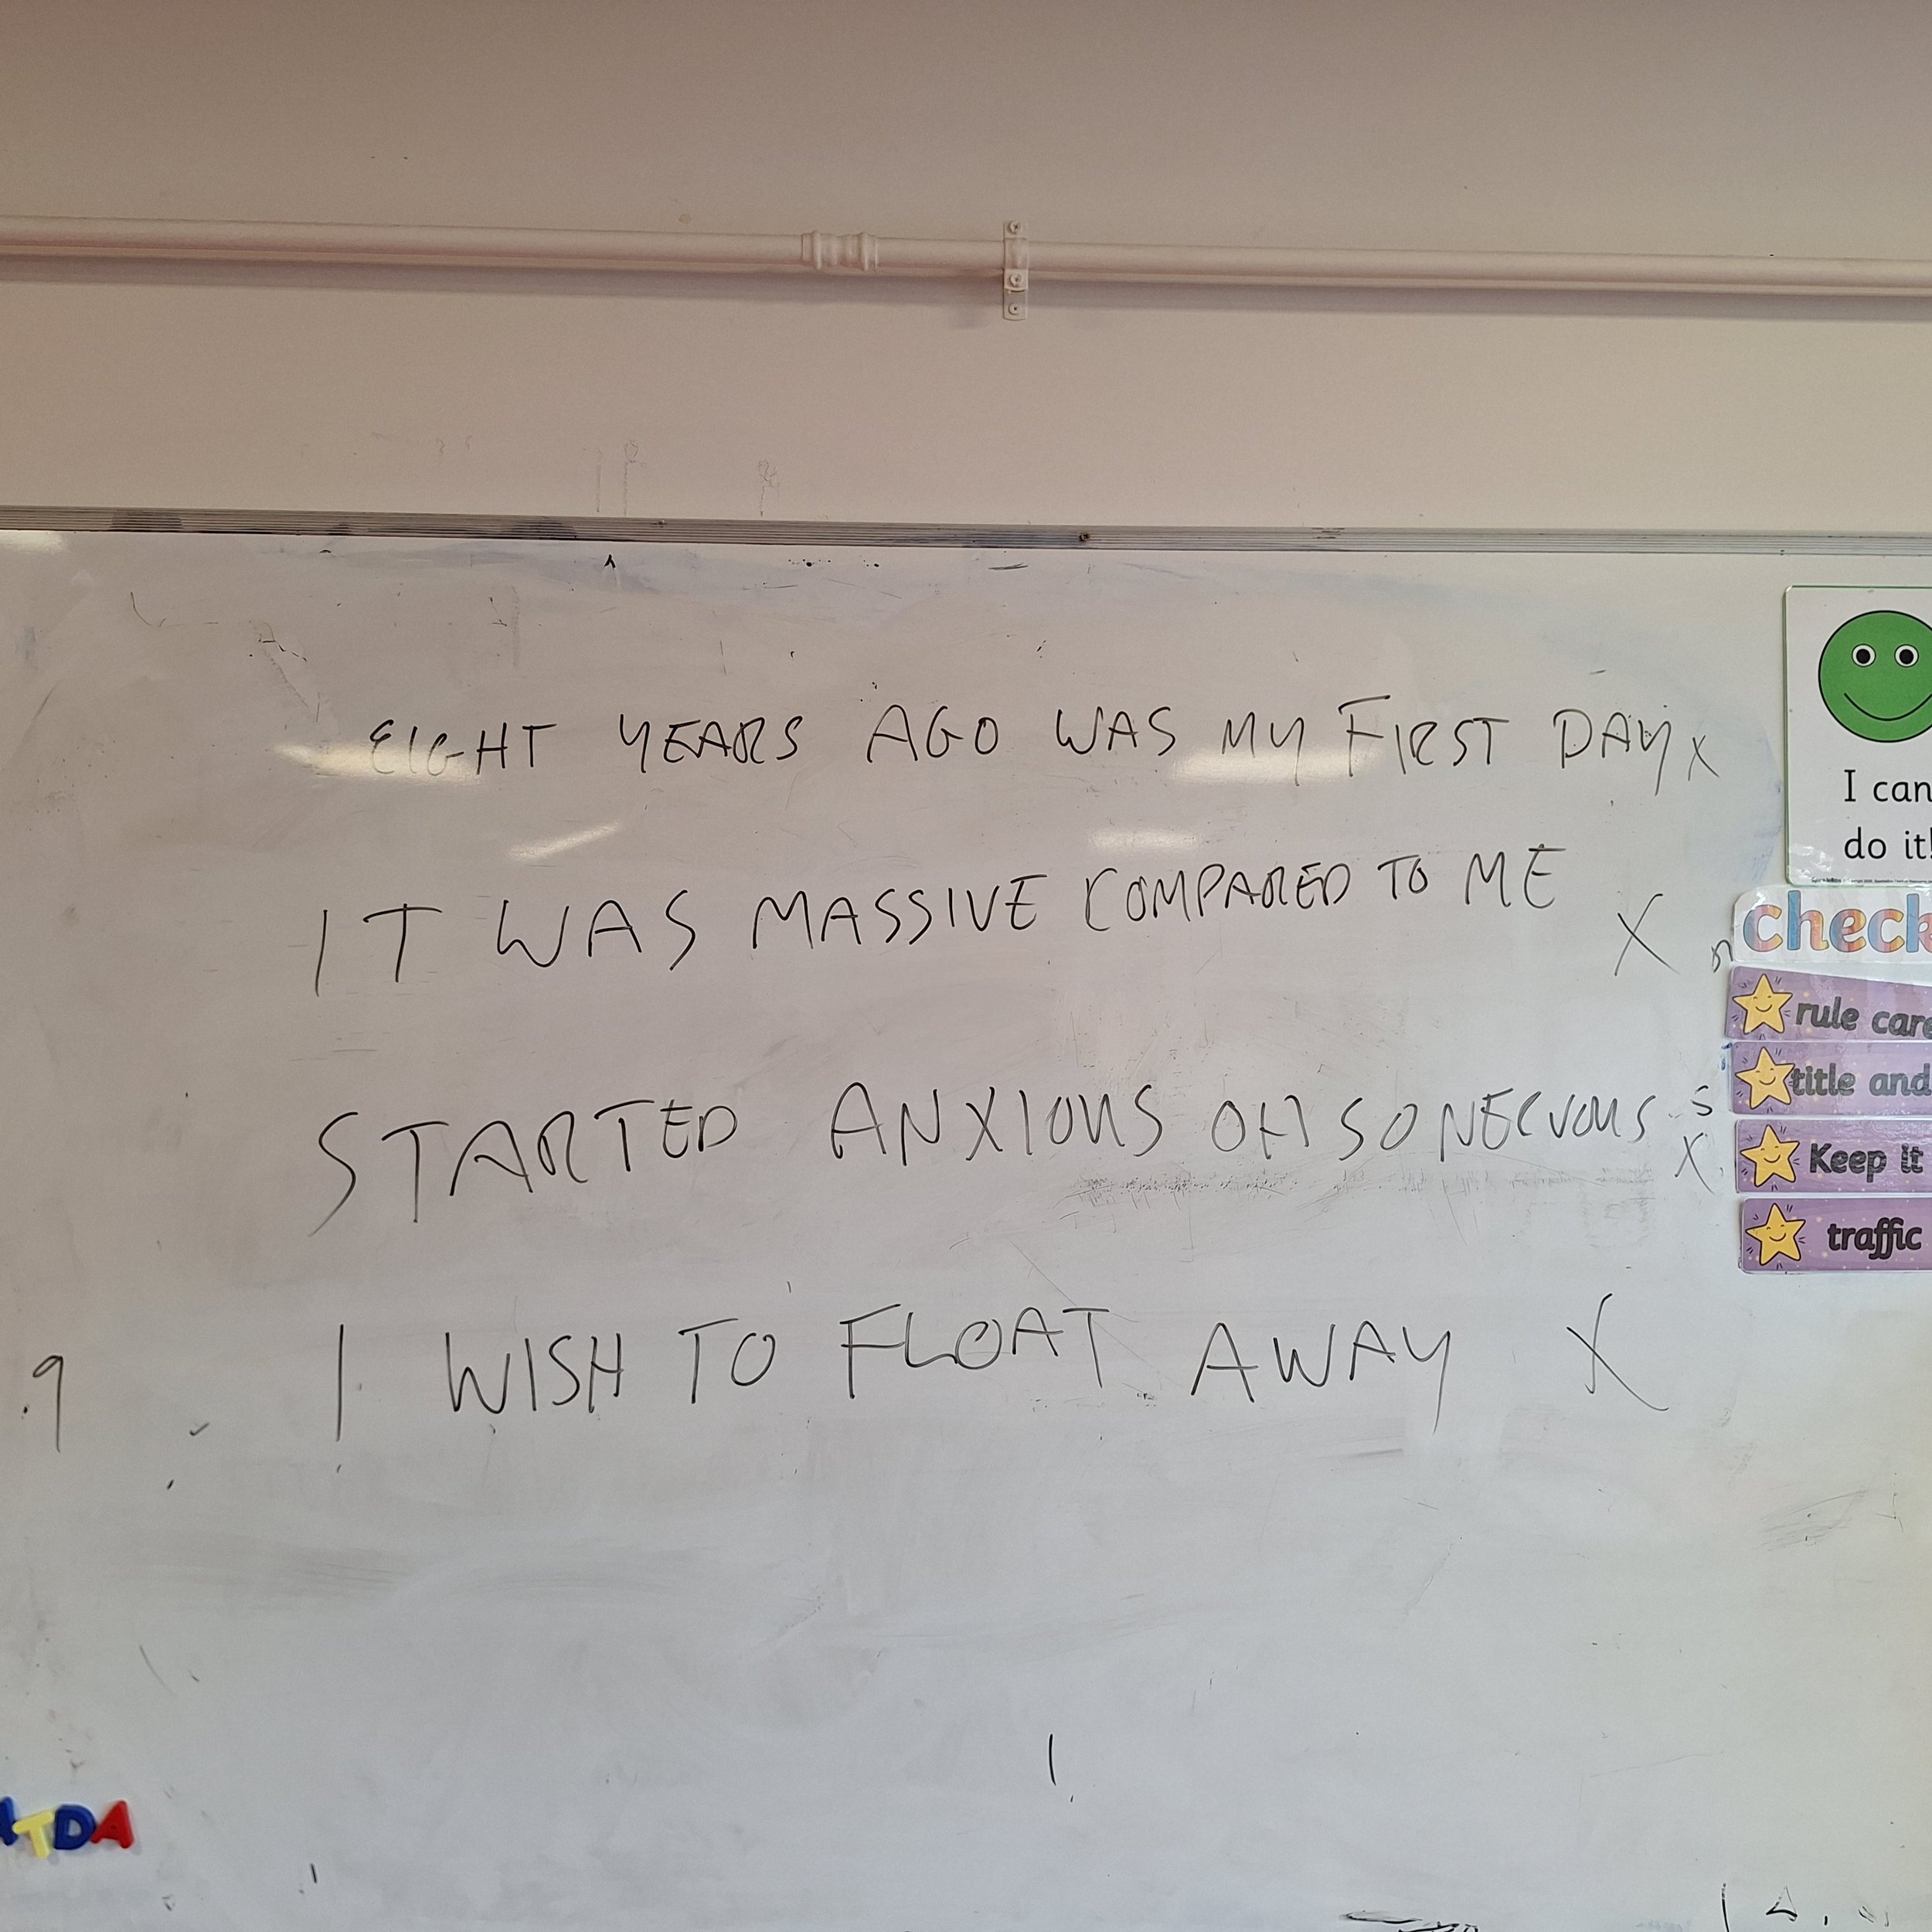 EIGHT YEARS AGO WAS MY FIRST DAY X
IT WAS MASSIVE COMPARED TO ME X
STARTED ANXIOUS OH SO NERVOUS X
I WISH TO FLOAT AWAY X
.9
I can
do it!
check
rule care
title and
Keep it
traffic
TDA